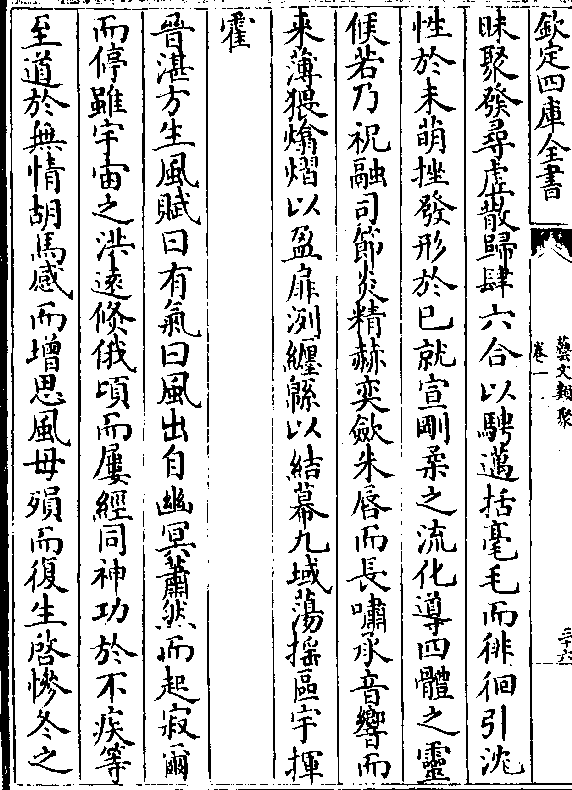 欽定四庫全書
藝文類聚
卷一
三十六
昧聚發尋虛散歸肆六合以騁邁括毫毛而徘徊引沈
性於未萌挫發形於已就宣剛柔之流化導四體之靈
候若乃祝融司節炎精赫奕歛朱唇而長嘯承音響而
来薄猥熻熠以盈扉洌纒緜以結幕九域蕩揺區宇揮
霍
晉湛方生風賦曰有氣曰風出自幽冥蕭然而起寂爾
而停雖宇宙之洪遠倏俄頃而屢經同神功於不疾等
至道於無情胡馬感而增思風母殞而復生啓慘冬之